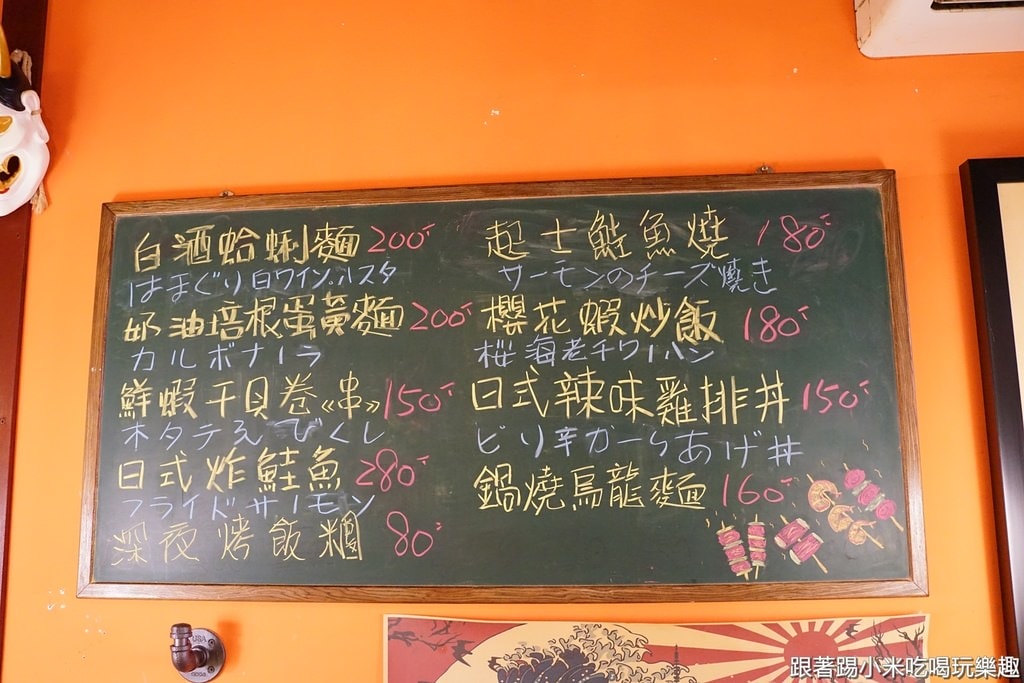 白酒蛤蜊麵 200
はまぐり白ワインパスタ
奶油培根蛋黃麵 200
カルボナーラ
鮮蝦干貝卷《串》 150
ホタテえびくし
日式炸鮭魚 280
フライドサーモン
深夜烤飯糰 80
起士鮭魚燒 180
サーモンのチーズ燒き
櫻花蝦炒飯 180
桜海老チャーハン
日式辣味雞排丼 150
ピリ辛からあげ丼
鍋燒烏龍麵 160
跟著踢小米吃喝玩樂趣